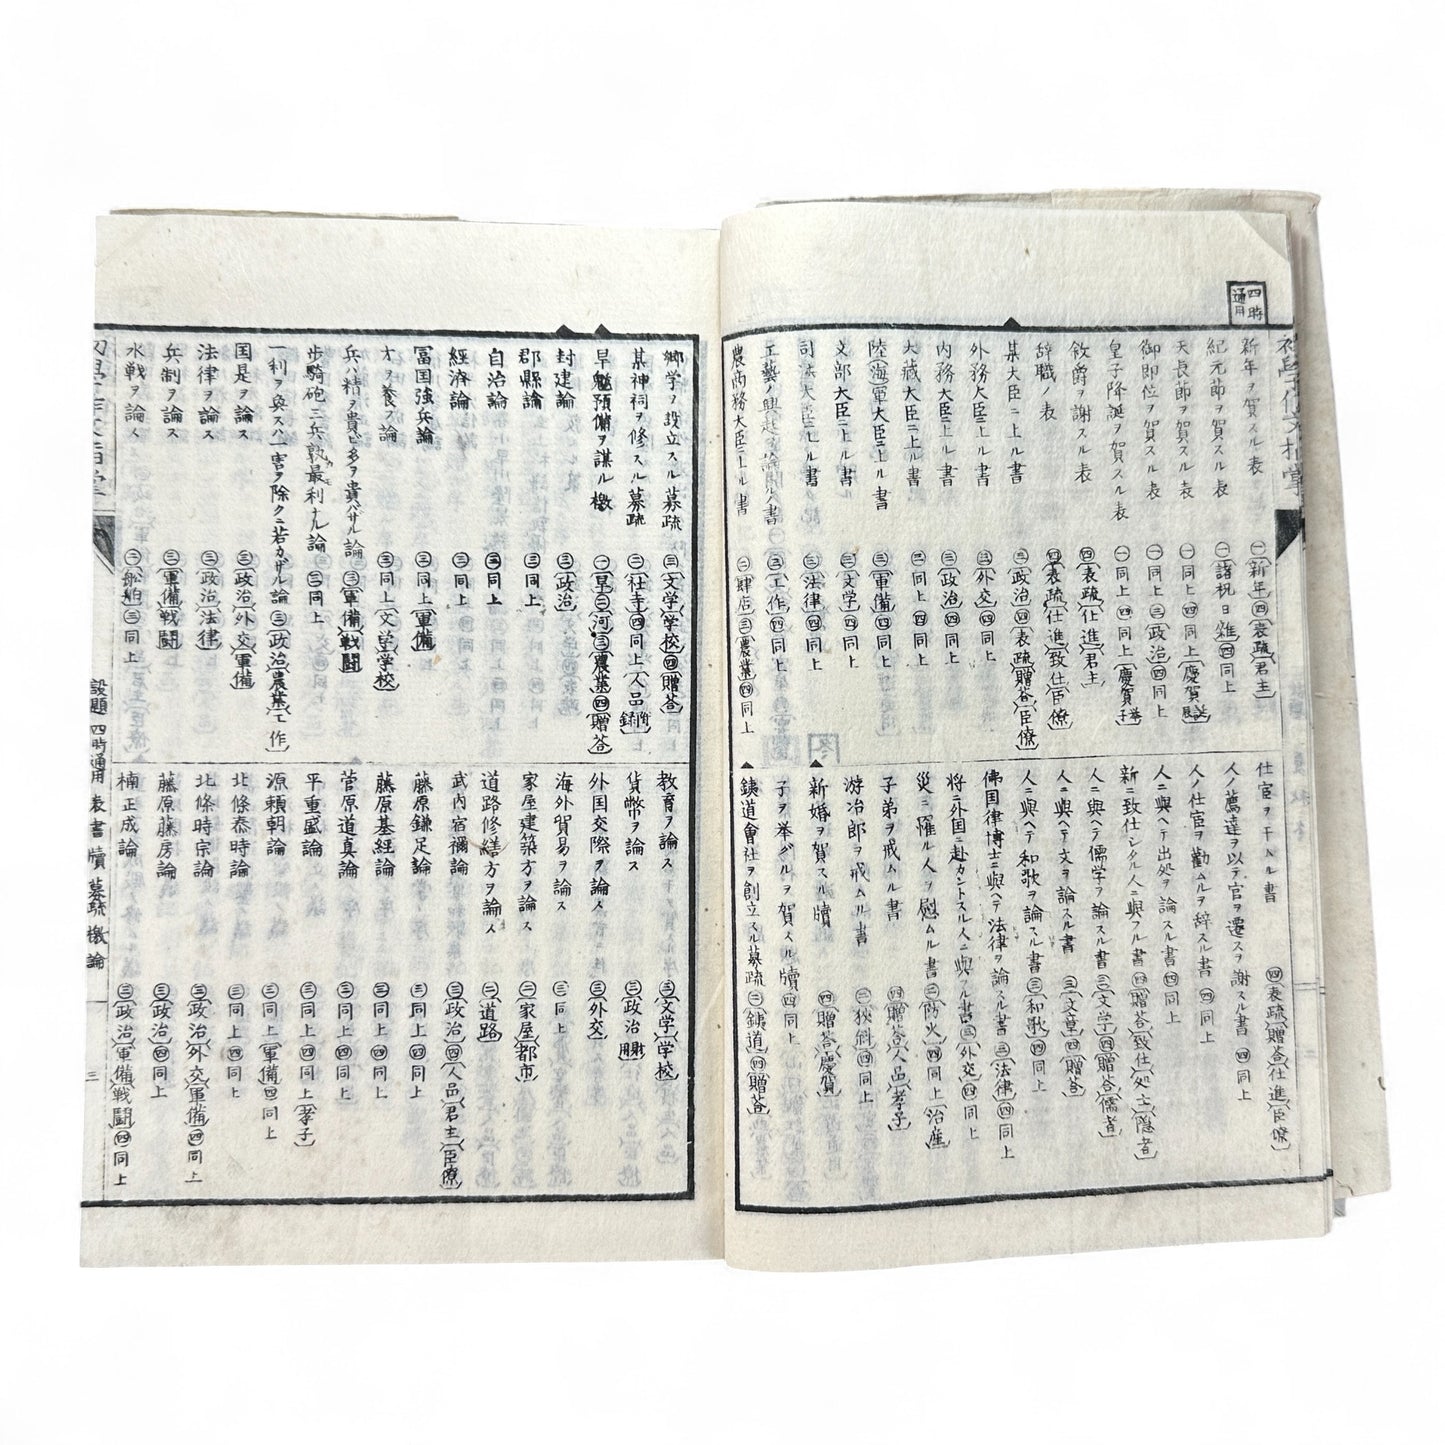 四時通用
新年ヲ賀スル表 ㊀新年㊃表疏君主
紀元節ヲ賀スル表 ㊀諸祝日雑㊃同上
天長節ヲ賀スル表 ㊀同上㊃同上慶賀
御即位ヲ賀スル表 ㊀同上㊂政治㊃同上
皇子降誕ヲ賀スル表 ㊀同上㊃同上慶賀
敘爵ヲ謝スル表 ㊃表疏仕進君主
辞職ノ表 ㊃表疏仕進致仕臣僚
某大臣ニ上ル書 ㊂政治㊃表疏贈答臣僚
外務大臣ニ上ル書 ㊂外交㊃同上
内務大臣ニ上ル書 ㊂政治㊃同上
大蔵大臣ニ上ル書 同上㊃同上
陸海軍大臣ニ上ル書 ㊂軍備㊃同上
文部大臣ニ上ル書 ㊂文学㊃同上
司法大臣ニ上ル書 ㊂法律㊃同上
工藝ノ興起ヲ論スル書 工作㊃同上
農商務大臣ニ上ル書 ㊁肆店㊂農業㊃同上
仕官ヲ干ムル書 ㊃表疏贈答仕進臣僚
人ノ薦達ヲ以テ官ヲ遷スヲ謝スル書 ㊃同上
人ノ仕官ヲ勸ムルヲ辞スル書 ㊃同上
人ニ與ヘテ出処ヲ論スル書㊃同上
新ニ致仕シタル人ニ與フル書㊃贈答致仕処士隱者
人ニ與ヘテ儒学ヲ論スル書㊂文学㊃贈答儒者
人ニ與ヘテ文ヲ論スル書 ㊂文章㊃贈答
人ニ與ヘテ和歌ヲ論スル書㊂和歌㊃同上
佛国律博士ニ與ヘテ法律ヲ論スル書㊂法律㊃同上
將ニ外国ニ赴カントスル人ニ與フル書㊂外交㊃同上
災ニ罹ル人ヲ慰ムル書㊁防火㊃同上治産
子弟ヲ戒ムル書 ㊃贈答人品孝子
游冶郎ヲ戒ムル書 ㊁狹斜㊃同上
新婚ヲ賀スル牘 ㊃贈答慶賀
子ヲ挙グルヲ賀スル牘㊃同上
銕道會社ヲ創立スル募疏㊁銕道㊃贈答
郷学ヲ設立スル募疏 ㊂文学学校㊃贈答
某神祠ヲ修スル募疏 ㊁社寺㊃同上人品
旱魃預備ヲ謀ル檄 ㊀旱㊁河㊂農業㊃贈答
封建論 ㊂政治
郡縣論 ㊂同上
自治論 ㊂同上
經済論 ㊂同上
冨国強兵論 ㊂同上軍備
才ヲ養フ論 ㊂同上文学学校
兵ハ精ヲ貴ビ多ヲ貴バザル論 ㊂軍備戰闘
歩騎砲三兵孰最利ナル論 ㊂同上
一利ヲ興スハ一害ヲ除クニ若カザル論㊂政治農業工作
国是ヲ論ス ㊂政治外交軍備
法律ヲ論ス ㊂政治法律
兵制ヲ論ス ㊂軍備戰闘
水戦ヲ論ス ㊁船舶㊂同上
教育ヲ論ス ㊂文学学校
貨幣ヲ論ス ㊂政治
外国交際ヲ論ス ㊂外交
海外貿易ヲ論ス ㊂同上
家屋建築方ヲ論ス ㊁家屋都市
道路修繕方ヲ論ス ㊁道路
武内宿禰論 ㊂政治㊃人品君主臣僚
藤原鎌足論 ㊂同上㊃同上
藤原基經論 ㊂同上㊃同上
菅原道真論 ㊂同上㊃同上
平重盛論 ㊂同上㊃同上孝子
源頼朝論 ㊂同上軍備㊃同上
北條泰時論 ㊂同上㊃同上
北條時宗論 ㊂政治外交軍備㊃同上
藤原藤房論 ㊂政治㊃同上
楠正成論 ㊂政治軍備戰闘㊃同上
設題 四時通用 表書牘募疏檄論 三